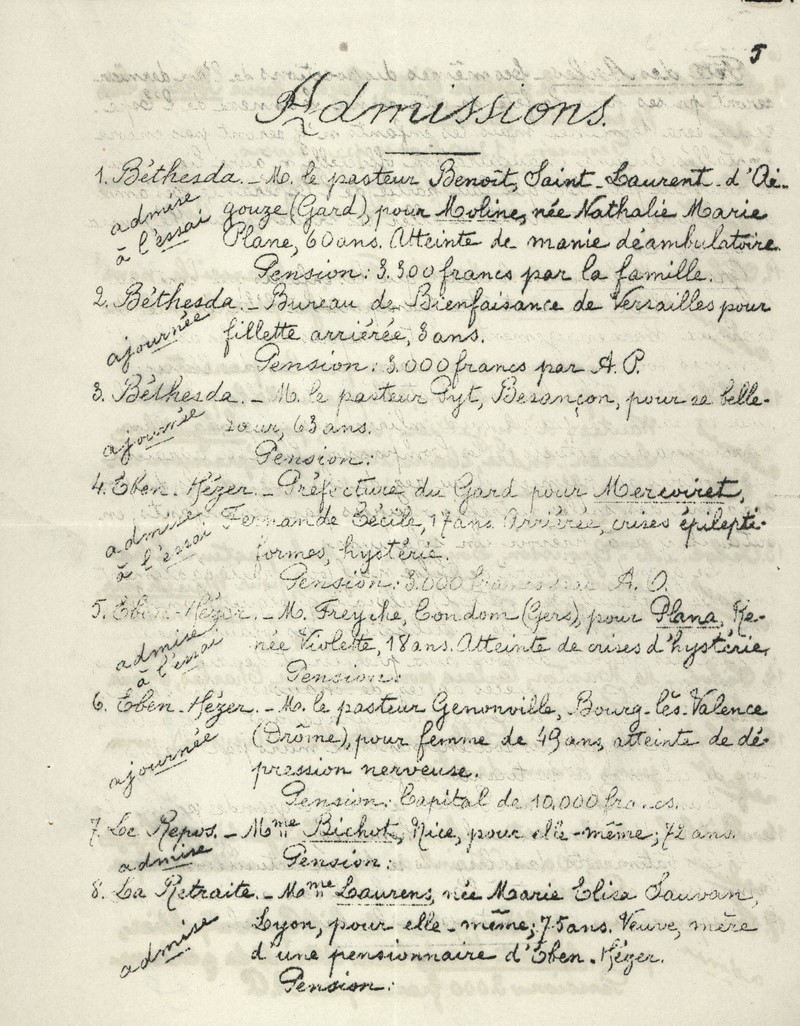 5
Admissions.
1. Béthesda. – M. le pasteur Benoît, Saint-Laurent-d'Ai-
admise gouze (Gard), pour Moline, née Nathalie Marie
à l'essai Plane, 60 ans. Atteinte de manie déambulatoire.
Pension: 3.300 francs par la famille.
2. Béthesda. – Bureau de Bienfaisance de Versailles pour
ajournée fillette arriérée, 3 ans.
Pension: 3.000 francs par A. P.
3. Béthesda. – M. le pasteur Pyt, Besançon, pour sa belle-
ajournée sœur, 63 ans.
Pension:
4. Eben-Hézer. – Préfecture du Gard pour Mercoiret,
admise Fernande Cécile, 17 ans. Arriérée, crises épilepti-
à l'essai formes, hystérie.
Pension: 3.000 francs par A. O.
5. Eben-Hézer. – M. Freyche, Condom (Gers), pour Plana, Re-
admise née Violette, 18 ans. Atteinte de crises d'hystérie,
à l'essai Pension:
6. Eben-Hézer. – M. le pasteur Genonville, Bourg-lès-Valence
ajournée (Drôme), pour femme de 49 ans, atteinte de dé-
pression nerveuse.
Pension: Capital de 10.000 francs.
7. Le Repos. – Mme Bichot, Nice, pour elle-même; 72 ans.
admise Pension:
8. La Retraite. – Mme Laurens, née Marie Elisa Sauvan,
admise Lyon, pour elle-même; 75 ans. Veuve, mère
d'une pensionnaire d'Eben-Hézer.
Pension: